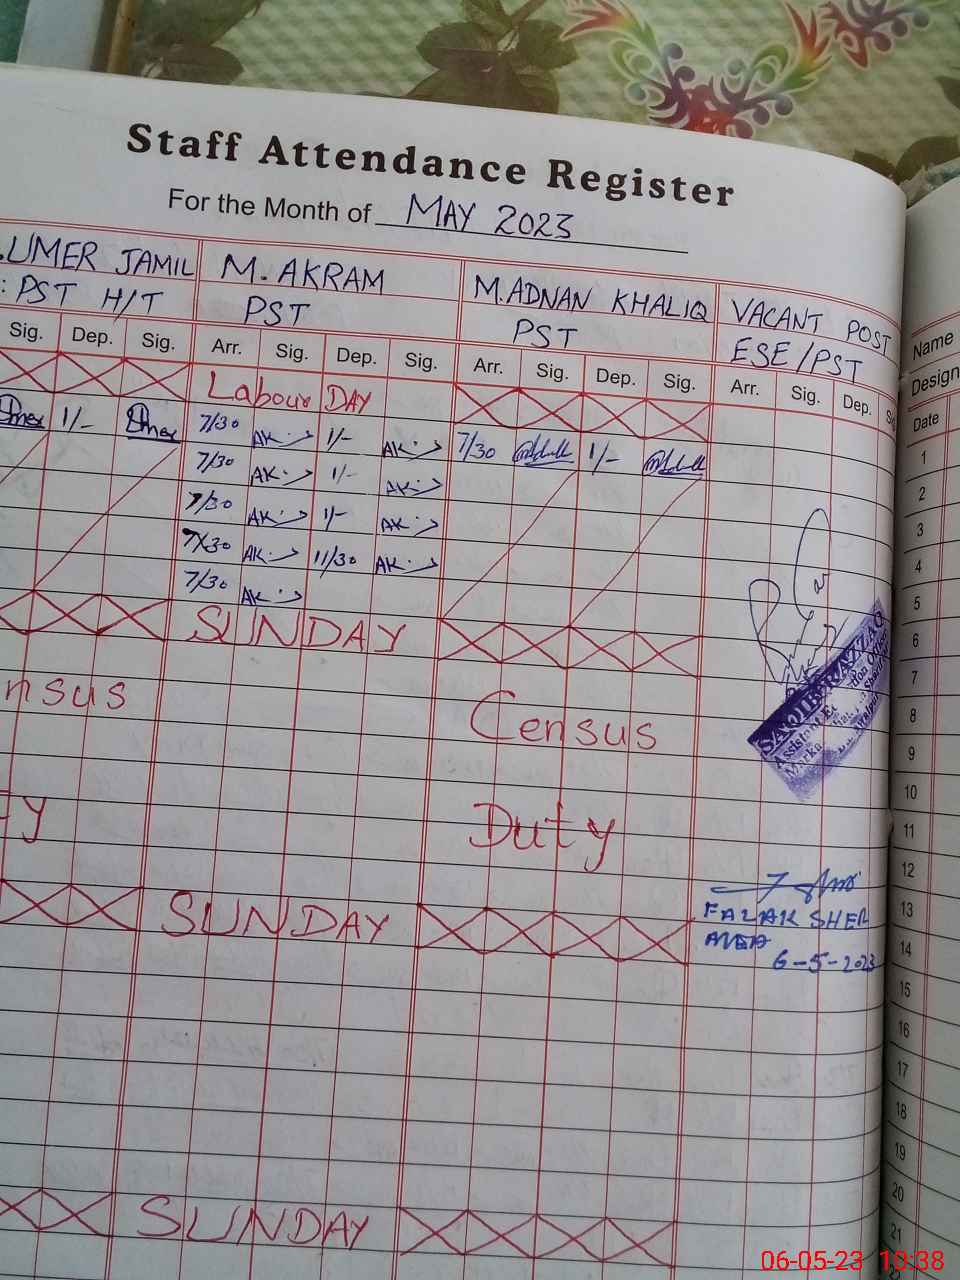 Staff Attendance Register
For the Month of MAY 2023
.UMER JAMIL M. AKRAM M.ADNAN KHALIQ VACANT POST
: PST H/T PST PST ESE/PST
Sig. Dep. Sig. Arr. Sig. Dep. Sig. Arr. Sig. Dep. Sig. Arr. Sig. Dep.
Labour DAY
1/- 7/30 AK 1/- AK 7/30 1/-
7/30 AK 1/- AK
7/30 AK 1/- AK
7/30 AK 11/30 AK
7/30 AK
SUNDAY
nsus Census
ty Duty
SAQIB RAZZAQ
Assistant
Marka
SUNDAY
FALAK SHER
AEO
6-5-2023
SUNDAY
Name
Design
Date
1
2
3
4
5
6
7
8
9
10
11
12
13
14
15
16
17
18
19
20
21
06-05-23 10:38